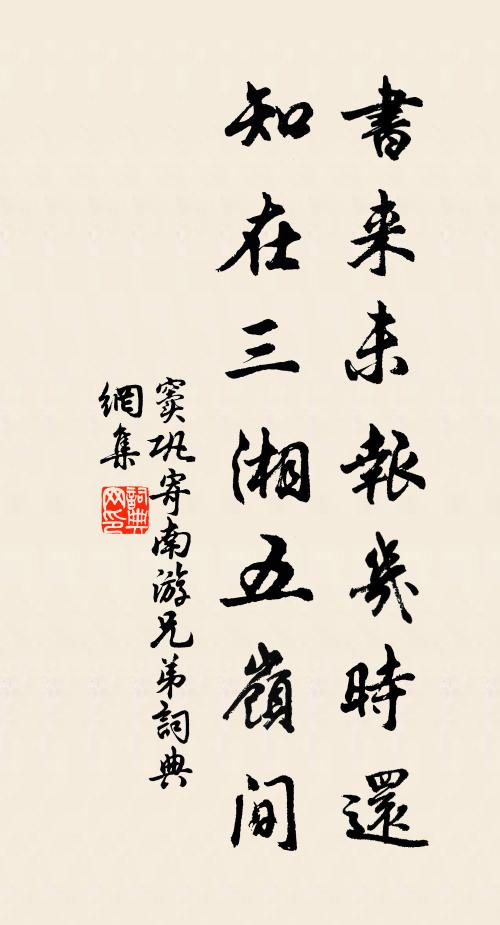 書来未報幾時還
知在三湘五嶺間
竇巩寄南游兄弟詞典
網集
詞典
网印